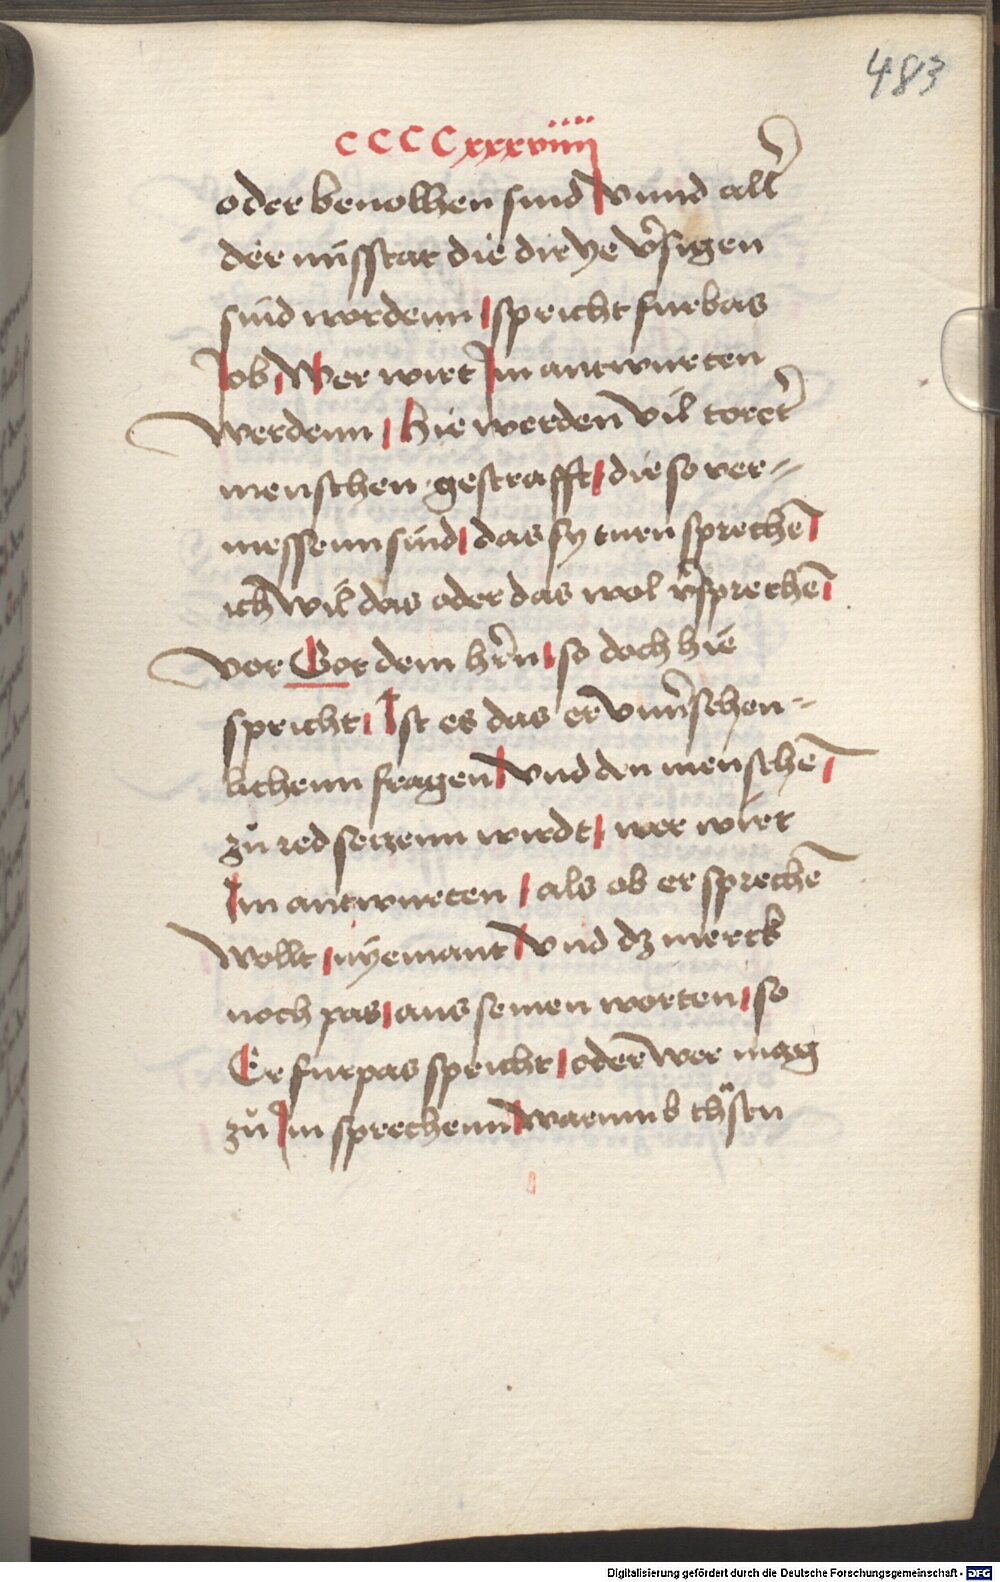 483
CCCCxxxviiii
oder beuolhen sind vnnd all'
der missetat die dir ye v'sigen
sind wordenn | spricht furbas
Job | Wer wirt Jm antwurten
werdenn | Hie werden vil toret'
menschen gestrafft | die so ver=
messenn sind | das sy turen sprechē |
ich wil das oder das wol v'sprechē |
vor Got dem hr̄n | so doch hie
spricht | Jst es das er vnnsēchen=
lichenn fragen | vnd den menschē |
zů red setzenn wirdt | wer wirt
Jm antwurten | als ob er sprechē
wollt | nyemant | vnd dz merck
noch pas | aus seinen worten | so
Er furpas spricht | oder wer mag
zů Jm sprechenn | warumb
Digitalisierung gefördert durch die Deutsche Forschungsgemeinschaft - DFG